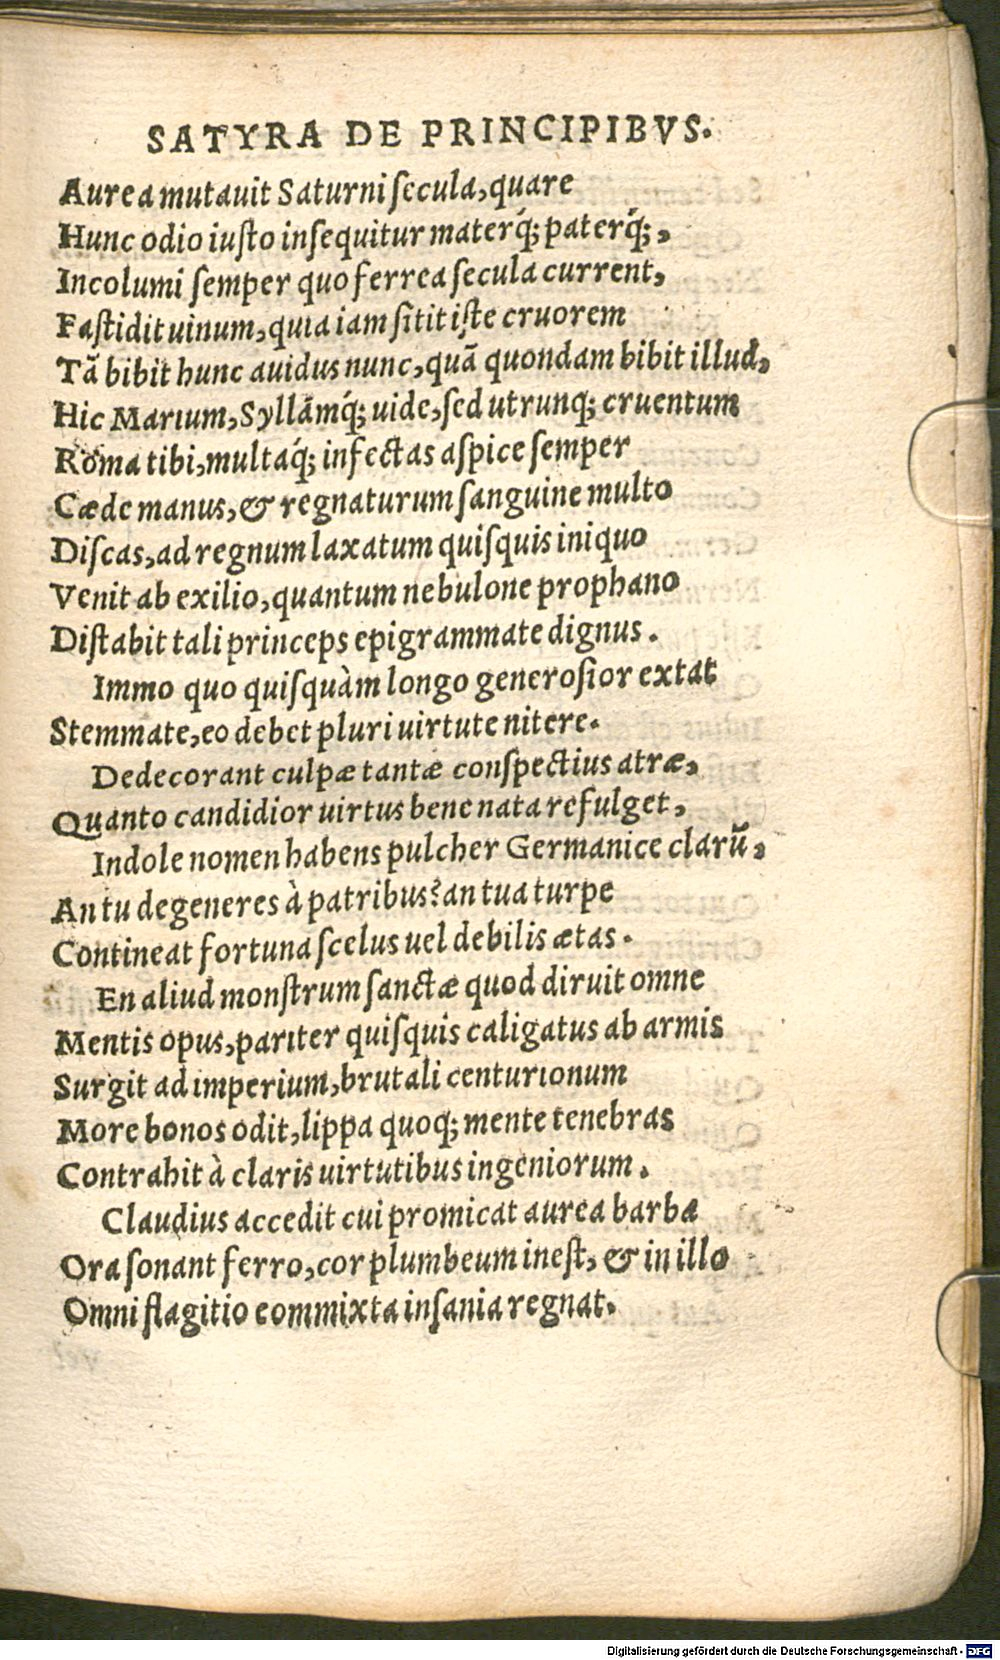 SATYRA DE PRINCIPIBVS.
Aurea mutauit Saturni ſecula, quare
Hunc odio iuſto inſequitur materq́; paterq́;,
Incolumi ſemper quo ferrea ſecula current,
Faſtidit uinum, quia iam ſitit iſte cruorem
Tã bibit hunc auidus nunc, quã quondam bibit illud,
Hic Marium, Syllãmq́; uide, ſed utrunq; cruentum
Roma tibi, multaq́; infectas aſpice ſemper
Cæde manus, & regnaturum ſanguine multo
Diſcas, ad regnum laxatum quiſquis iniquo
Venit ab exilio, quantum nebulone prophano
Diſtabit tali princeps epigrammate dignus.
Immo quo quiſquàm longo generoſior extat
Stemmate, eo debet pluri uirtute nitere.
Dedecorant culpæ tantæ conſpectius atræ,
Quanto candidior uirtus bene nata refulget,
Indole nomen habens pulcher Germanice clarũ,
An tu degeneres à patribus? an tua turpe
Contineat fortuna ſcelus uel debilis ætas.
En aliud monſtrum ſanctæ quod diruit omne
Mentis opus, pariter quiſquis caligatus ab armis
Surgit ad imperium, brutali centurionum
More bonos odit, lippa quoq; mente tenebras
Contrahit à claris uirtutibus ingeniorum.
Claudius accedit cui promicat aurea barba
Ora ſonant ferro, cor plumbeum ineſt, & in illo
Omni flagitio commixta inſania regnat.
Digitalisierung gefördert durch die Deutsche Forschungsgemeinschaft - DFG